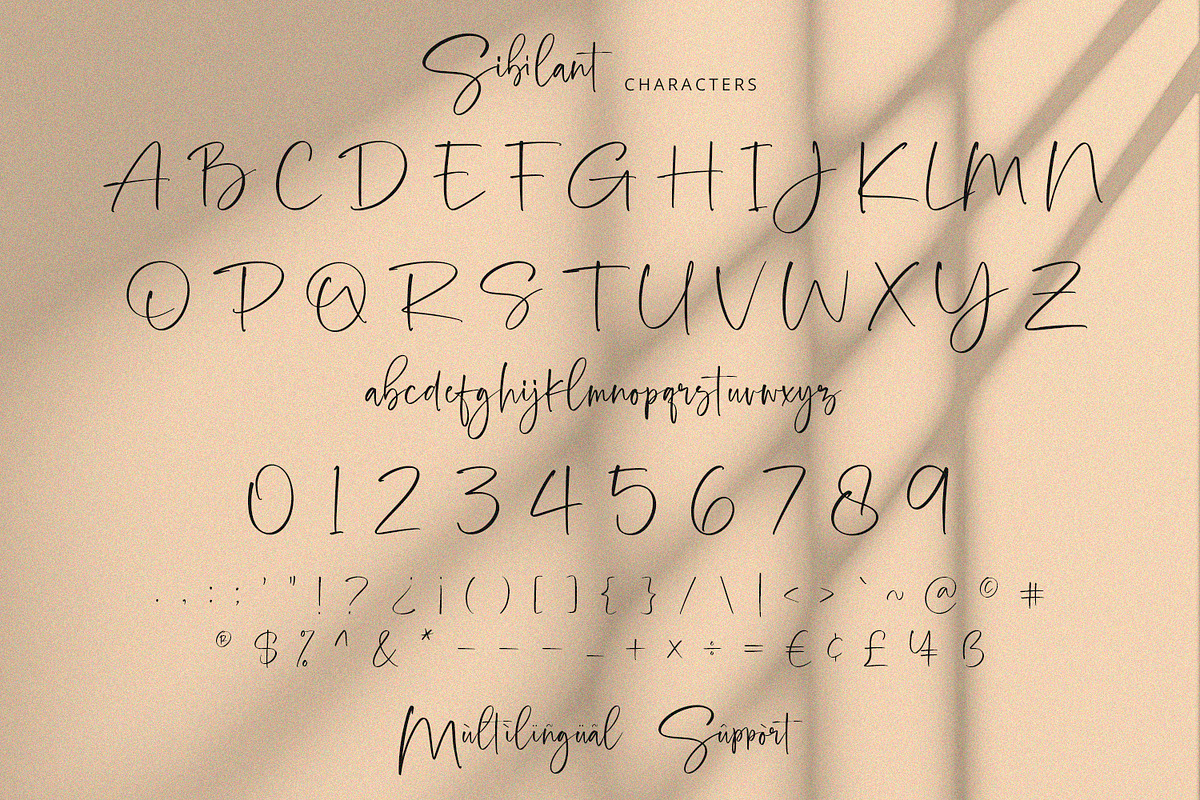 Sibilant CHARACTERS
A B C D E F G H I J K L M N
O P Q R S T U V W X Y Z
abcdefghijklmnopqrstuvwxyz
0 1 2 3 4 5 6 7 8 9
. , : ; ' " ! ? ¿ ¡ ( ) [ ] { } / \ | < > ` ~ @ © #
® $ % ^ & * – – – _ + x ÷ = € ¢ £ ¥ ß
Mùltīlïñgüãl Sûppòrt